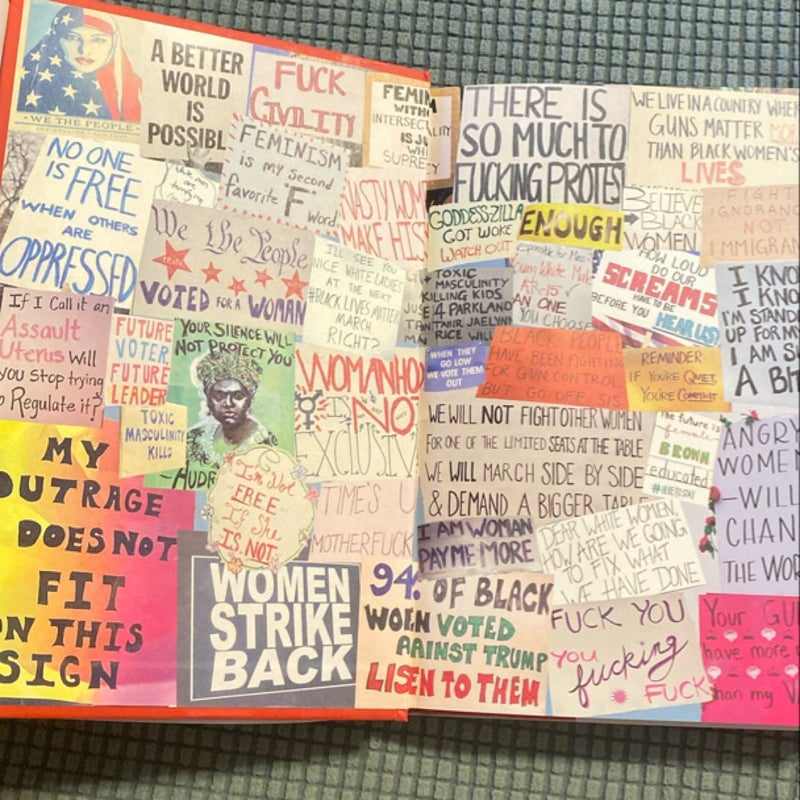 WE THE PEOPLE
A BETTER
WORLD
IS
POSSIBL
FUCK
CIVILITY
FEMIN
WITHO
INTERSEC
IS JU
WHI
SUPRE
FEMINISM
is my second
favorite "F"
word
NO ONE
IS FREE
WHEN OTHERS
ARE
OPPRESSED
NASTY WOM
MAKE HIS
We the People
VOTED FOR A WOMAN
I'LL SEE YOU
NICE WHITE LADIES
AT THE NEXT
#BLACK LIVES MATTER
MARCH
RIGHT?
If I Call it an
Assault
Uterus Will
you Stop trying
to Regulate it?
FUTURE
VOTER
FUTURE
LEADER
TOXIC
MASCULINITY
KILLS
YOUR SILENCE WILL
NOT PROTECT YOU
-AUDR
WOMANHO
IS
NO
EXCLUSIV
I'm Not
FREE
If She
IS NOT
TIME'S U
MOTHERFUCK
MY
OUTRAGE
DOES NOT
FIT
ON THIS
SIGN
WOMEN
STRIKE
BACK
THERE IS
SO MUCH TO
FUCKING PROTES
WE LIVE IN A COUNTRY WHER
GUNS MATTER MOR
THAN BLACK WOMEN'S
LIVES
GODDESSZILLA
GOT WOKE
WATCH OUT
ENOUGH
BELIEVE
BLACK
WOMEN
FIGHT
IGNORANC
NOT
IMMIGRAN
TOXIC
MASCULINITY
KILLING KIDS
4 PARKLAND
TAMIR JAELYNN
RICE WILL
Young White Male
AR-15
AN ONE
YOU CHOOSE
HOW LOUD
DO OUR
SCREAMS
HAVE TO BE
BEFORE YOU HEAR US?
I KNO
I KNO
I'M STAND
UP FOR MY
I AM S
A BIT
WHEN THEY
GO LOW
WE VOTE THEM
OUT
BLACK PEOPLE
HAVE BEEN FIGHTING
FOR GUN CONTROL
BUT GO OFF, SIS
REMINDER
IF YOU'RE QUIET,
YOU'RE COMPLICIT
WE WILL NOT FIGHT OTHER WOMEN
FOR ONE OF THE LIMITED SEATS AT THE TABLE
WE WILL MARCH SIDE BY SIDE
& DEMAND A BIGGER TABLE
The future is
female
BROWN
educated
ANGRY
WOMEN
-WILL
CHAN
THE WOR
I AM WOMAN
PAY ME MORE
DEAR WHITE WOMEN,
HOW ARE WE GOING
TO FIX WHAT
WE HAVE DONE
94% OF BLACK
WOMEN VOTED
AGAINST TRUMP
LISTEN TO THEM
FUCK YOU
YOU
fucking
FUCK
Your GU
have more
than my V